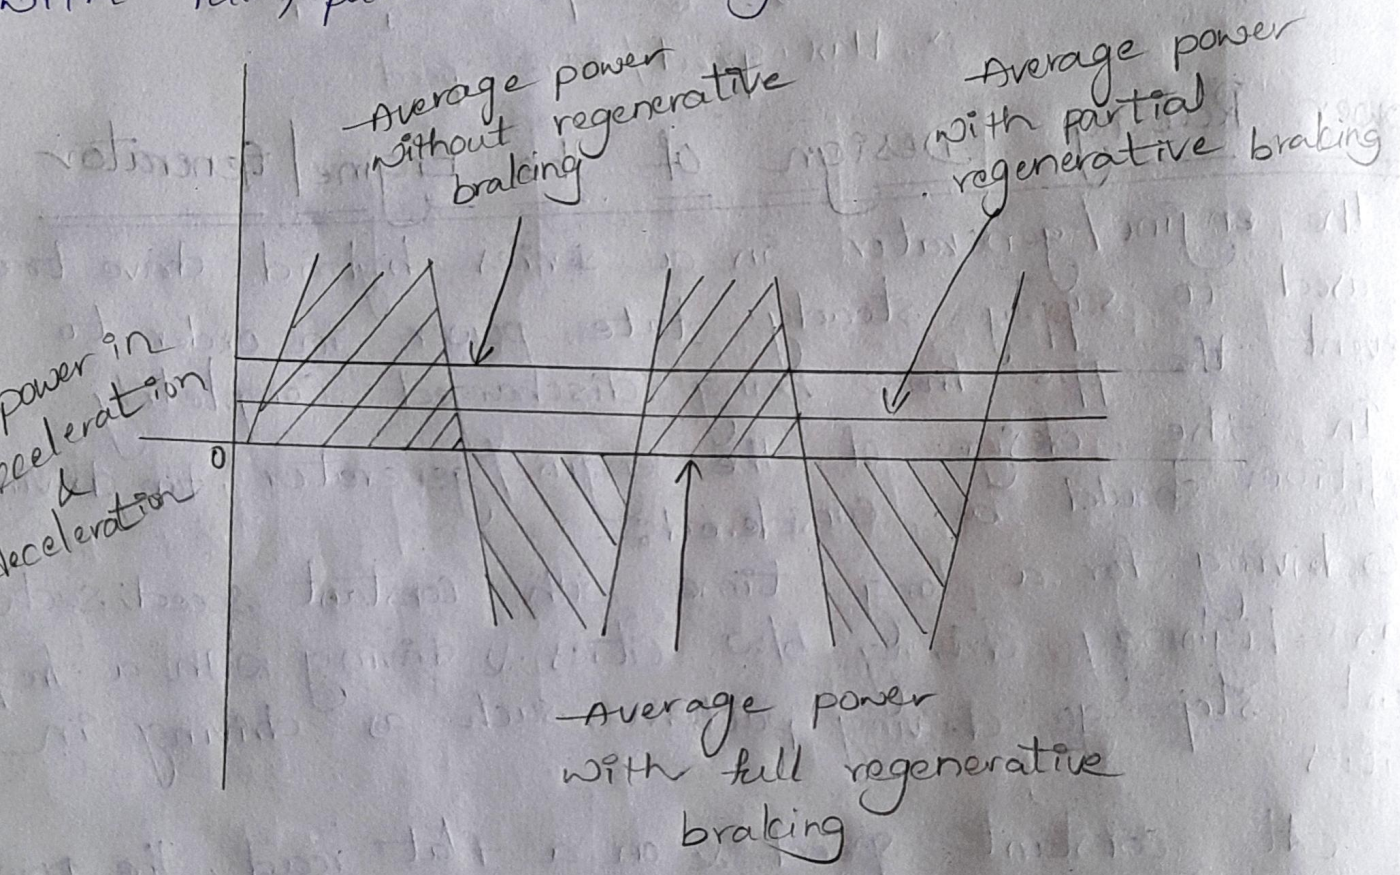 Average power
without regenerative
braking
Average power
with partial
regenerative braking
power in
acceleration
&
deceleration
0
Average power
with full regenerative
braking